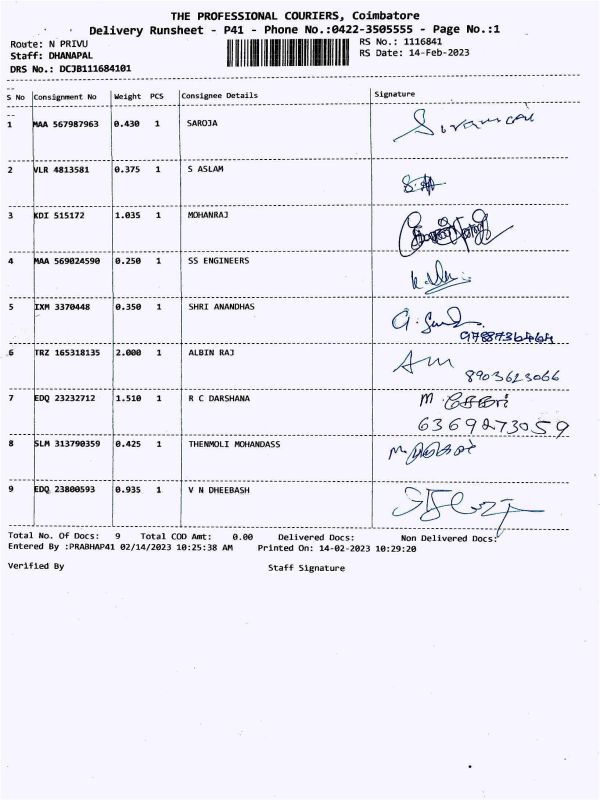 THE PROFESSIONAL COURIERS, Coimbatore
Delivery Runsheet - P41 - Phone No.:0422-3505555 - Page No.:1
Route: N PRIVU RS No.: 1116841
Staff: DHANAPAL RS Date: 14-Feb-2023
DRS No.: DCJB111684101
S No Consignment No Weight PCS Consignee Details Signature
1 MAA 567987963 0.430 1 SAROJA
2 VLR 4813581 0.375 1 S ASLAM
3 KDI 515172 1.035 1 MOHANRAJ
4 MAA 569024590 0.250 1 SS ENGINEERS
5 IXM 3370448 0.350 1 SHRI ANANDHAS
6 TRZ 165318135 2.000 1 ALBIN RAJ
8903623066
7 EDQ 23232712 1.510 1 R C DARSHANA M
6369273059
8 SLM 313790359 0.425 1 THENMOLI MOHANDASS
9 EDQ 23800593 0.935 1 V N DHEEBASH
Total No. Of Docs: 9 Total COD Amt: 0.00 Delivered Docs: Non Delivered Docs:
Entered By :PRABHAP41 02/14/2023 10:25:38 AM Printed On: 14-02-2023 10:29:20
Verified By Staff Signature